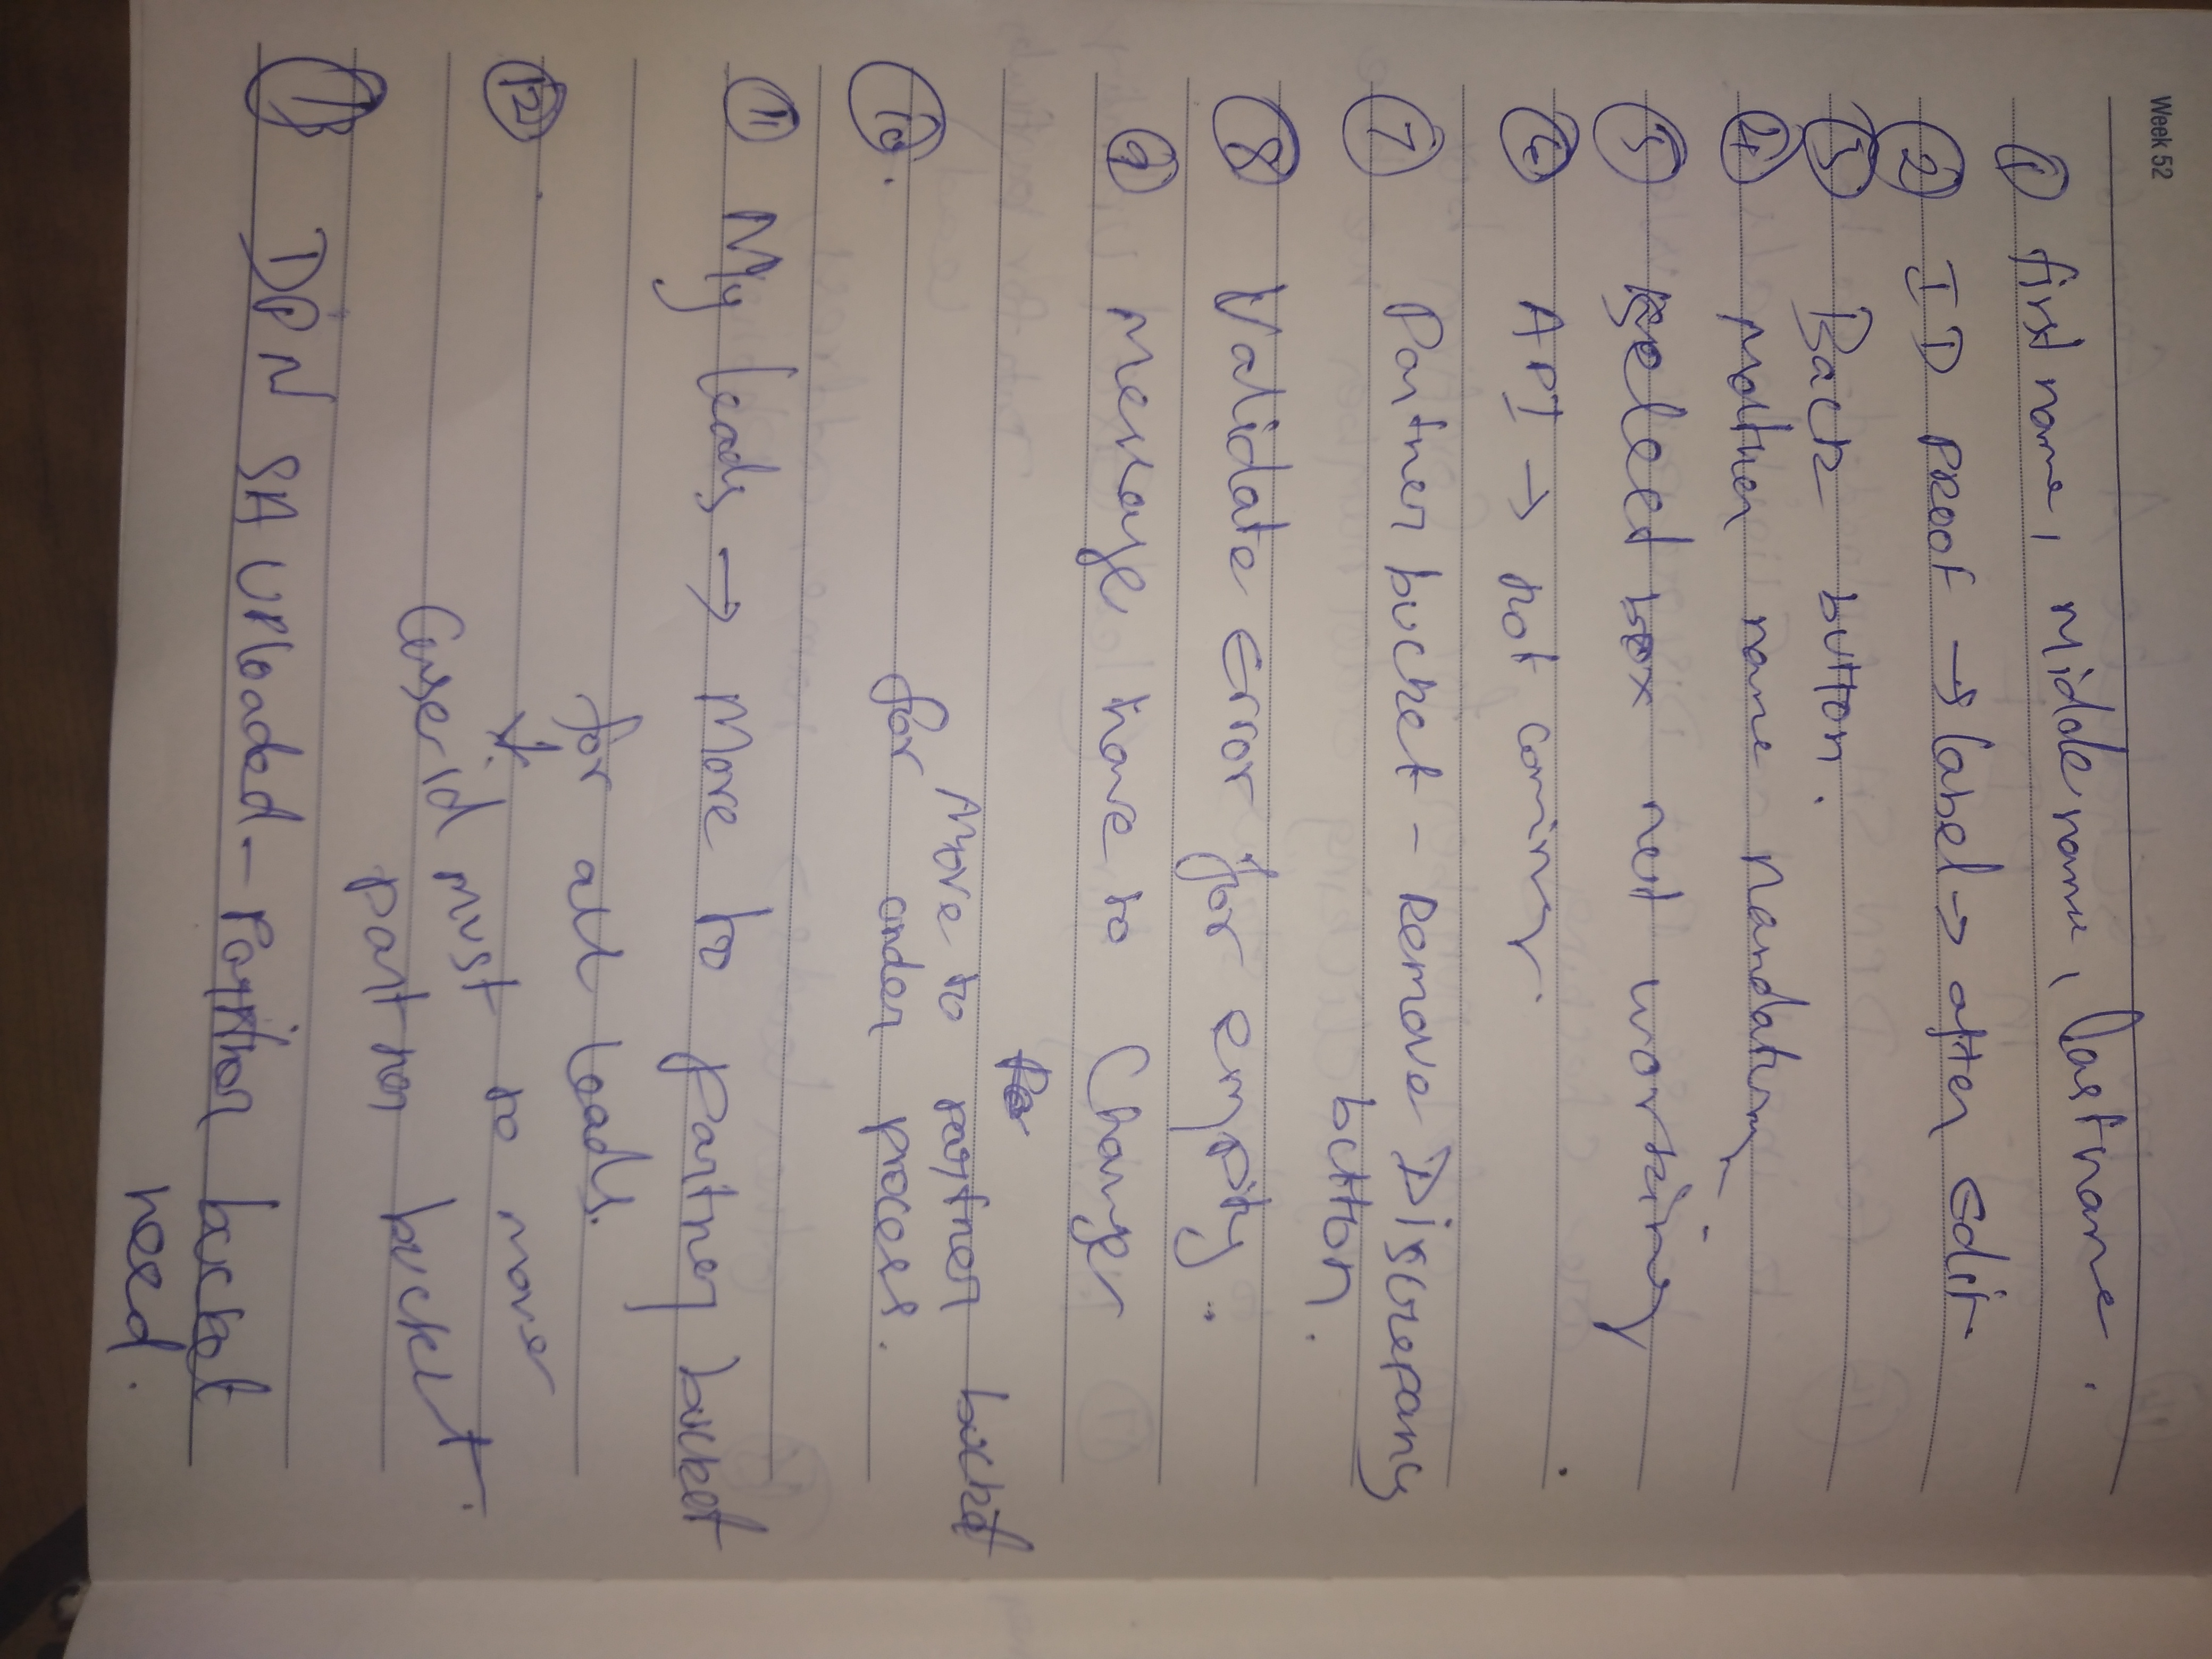 Week 52
① first name, Middle name, lastname.
② ID PROOF → label → after Edit
③ Back button.
④ Mother name Mandatory
⑤ select box not working
⑥ API → not coming.
⑦ Partner bucket - Remove Discrepancy
button.
⑧ Validate Error for empty.
⑨ Message have to Change
Move to partner bucket
⑩. for under process.
⑪ My leads → Move to partner bucket
for all leads.
⑫ ↓
must to move
partner bucket.
⑬ DPN SA UPloaded - Partner bucket
need.